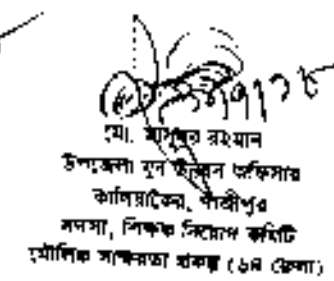 মো. মাসুদুর রহমান
উপজেলা যুব উন্নয়ন অফিসার
কালিয়াকৈর, গাজীপুর
সদস্য, শিক্ষক নিয়োগ কমিটি
মৌলিক সাক্ষরতা প্রকল্প (৬৪ জেলা)